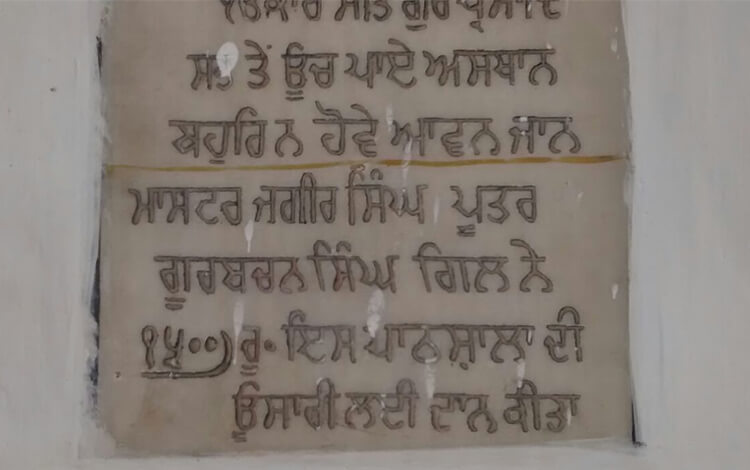 ੴਕਾਰ ਸਤਿ ਗੁਰ ਪ੍ਰਸਾਦਿ
ਸਭ ਤੇਂ ਊਚ ਪਾਏ ਅਸਥਾਨ
ਬਹੁਰਿ ਨ ਹੋਵੇ ਆਵਨ ਜਾਨ
ਮਾਸਟਰ ਜਗੀਰ ਸਿੰਘ ਪੂਤਰ
ਗੂਰਬਚਨ ਸਿੰਘ ਗਿਲ ਨੇ
੧੫੦੦) ਰੂ. ਇਸ ਪਾਠਸ਼ਾਲਾ ਦੀ
ਊਸਾਰੀ ਲਈ ਦਾਨ ਕੀਤਾ